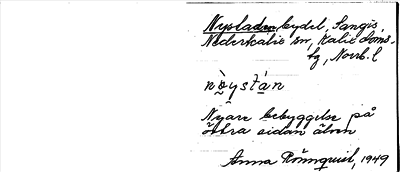 Nystaden bydel, Sangis,
Nederkalix sn, Kalix doms-
sg, Norrb. l
Nyare bebyggelse på
östra sidan älven
Anna Rönnquist, 1949